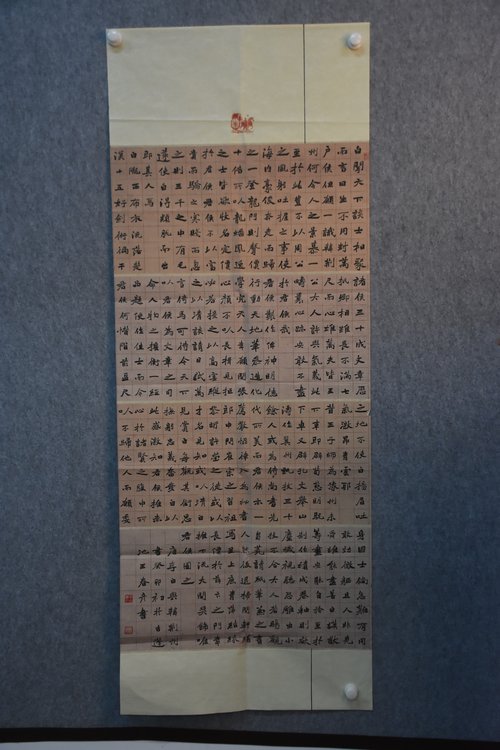 白聞天下談士相聚
而言曰生不用封萬
户侯但願一識韓荆
州何令人之景慕一
至於此豈不以周公
之風躬吐握之事使
海内豪俊奔走而歸
之一登龍門則聲價
十倍所以龍蟠鳳逸
之士皆欲收名定價
於君侯君侯不以富
貴而驕之寒賤而忽
之則三千之中有毛
遂使白得穎脱而出
即其人焉
白隴西布衣流落楚
漢十五好劍術徧干
諸侯三十成文章歷
抵卿相雖長不滿七
尺而心雄萬夫皆王
公大人許與氣義此
疇曩心跡安敢不盡
於君侯哉
君侯製作侔神明德
行動天地筆參造化
學究天人幸願開張
心顔不以長揖見拒
必若接之以高宴縱
之以清談請日試萬
言倚馬可待今天下
以君侯為文章之司
命人物之權衡一經
品題便作佳士而今
君侯何惜階前盈尺
之地不使白揚眉吐
氣激昂青雲耶
昔王子師為豫州未
下車即辟荀慈明既
下車又辟孔文舉山
濤作冀州甄拔三十
餘人或為侍中尚書先
代所美而君侯亦一
薦嚴協律入為秘書
郎中間崔宗之房習祖
黎昕許瑩之徒或以
才名見知或以清白
見賞白每觀其銜恩
撫躬忠義奮發以
此感激知君侯推赤
心於諸賢之腹中所
以不歸他人而願委
身國士儻急難有用
敢效微軀且人非堯
舜誰能盡善白謨猷
籌畫安能自矜至於
制作積成卷軸則欲
塵穢視聽恐雕蟲小
技不合大人若賜觀
芻蕘請給紙筆兼之書
人然後退掃閒軒繕
寫呈上庶青萍結綠
長價於薛卞之門幸
推下流大開獎飾唯
君侯圖之
唐李白與韓荆州
書癸卯初於白蓮
池王春書